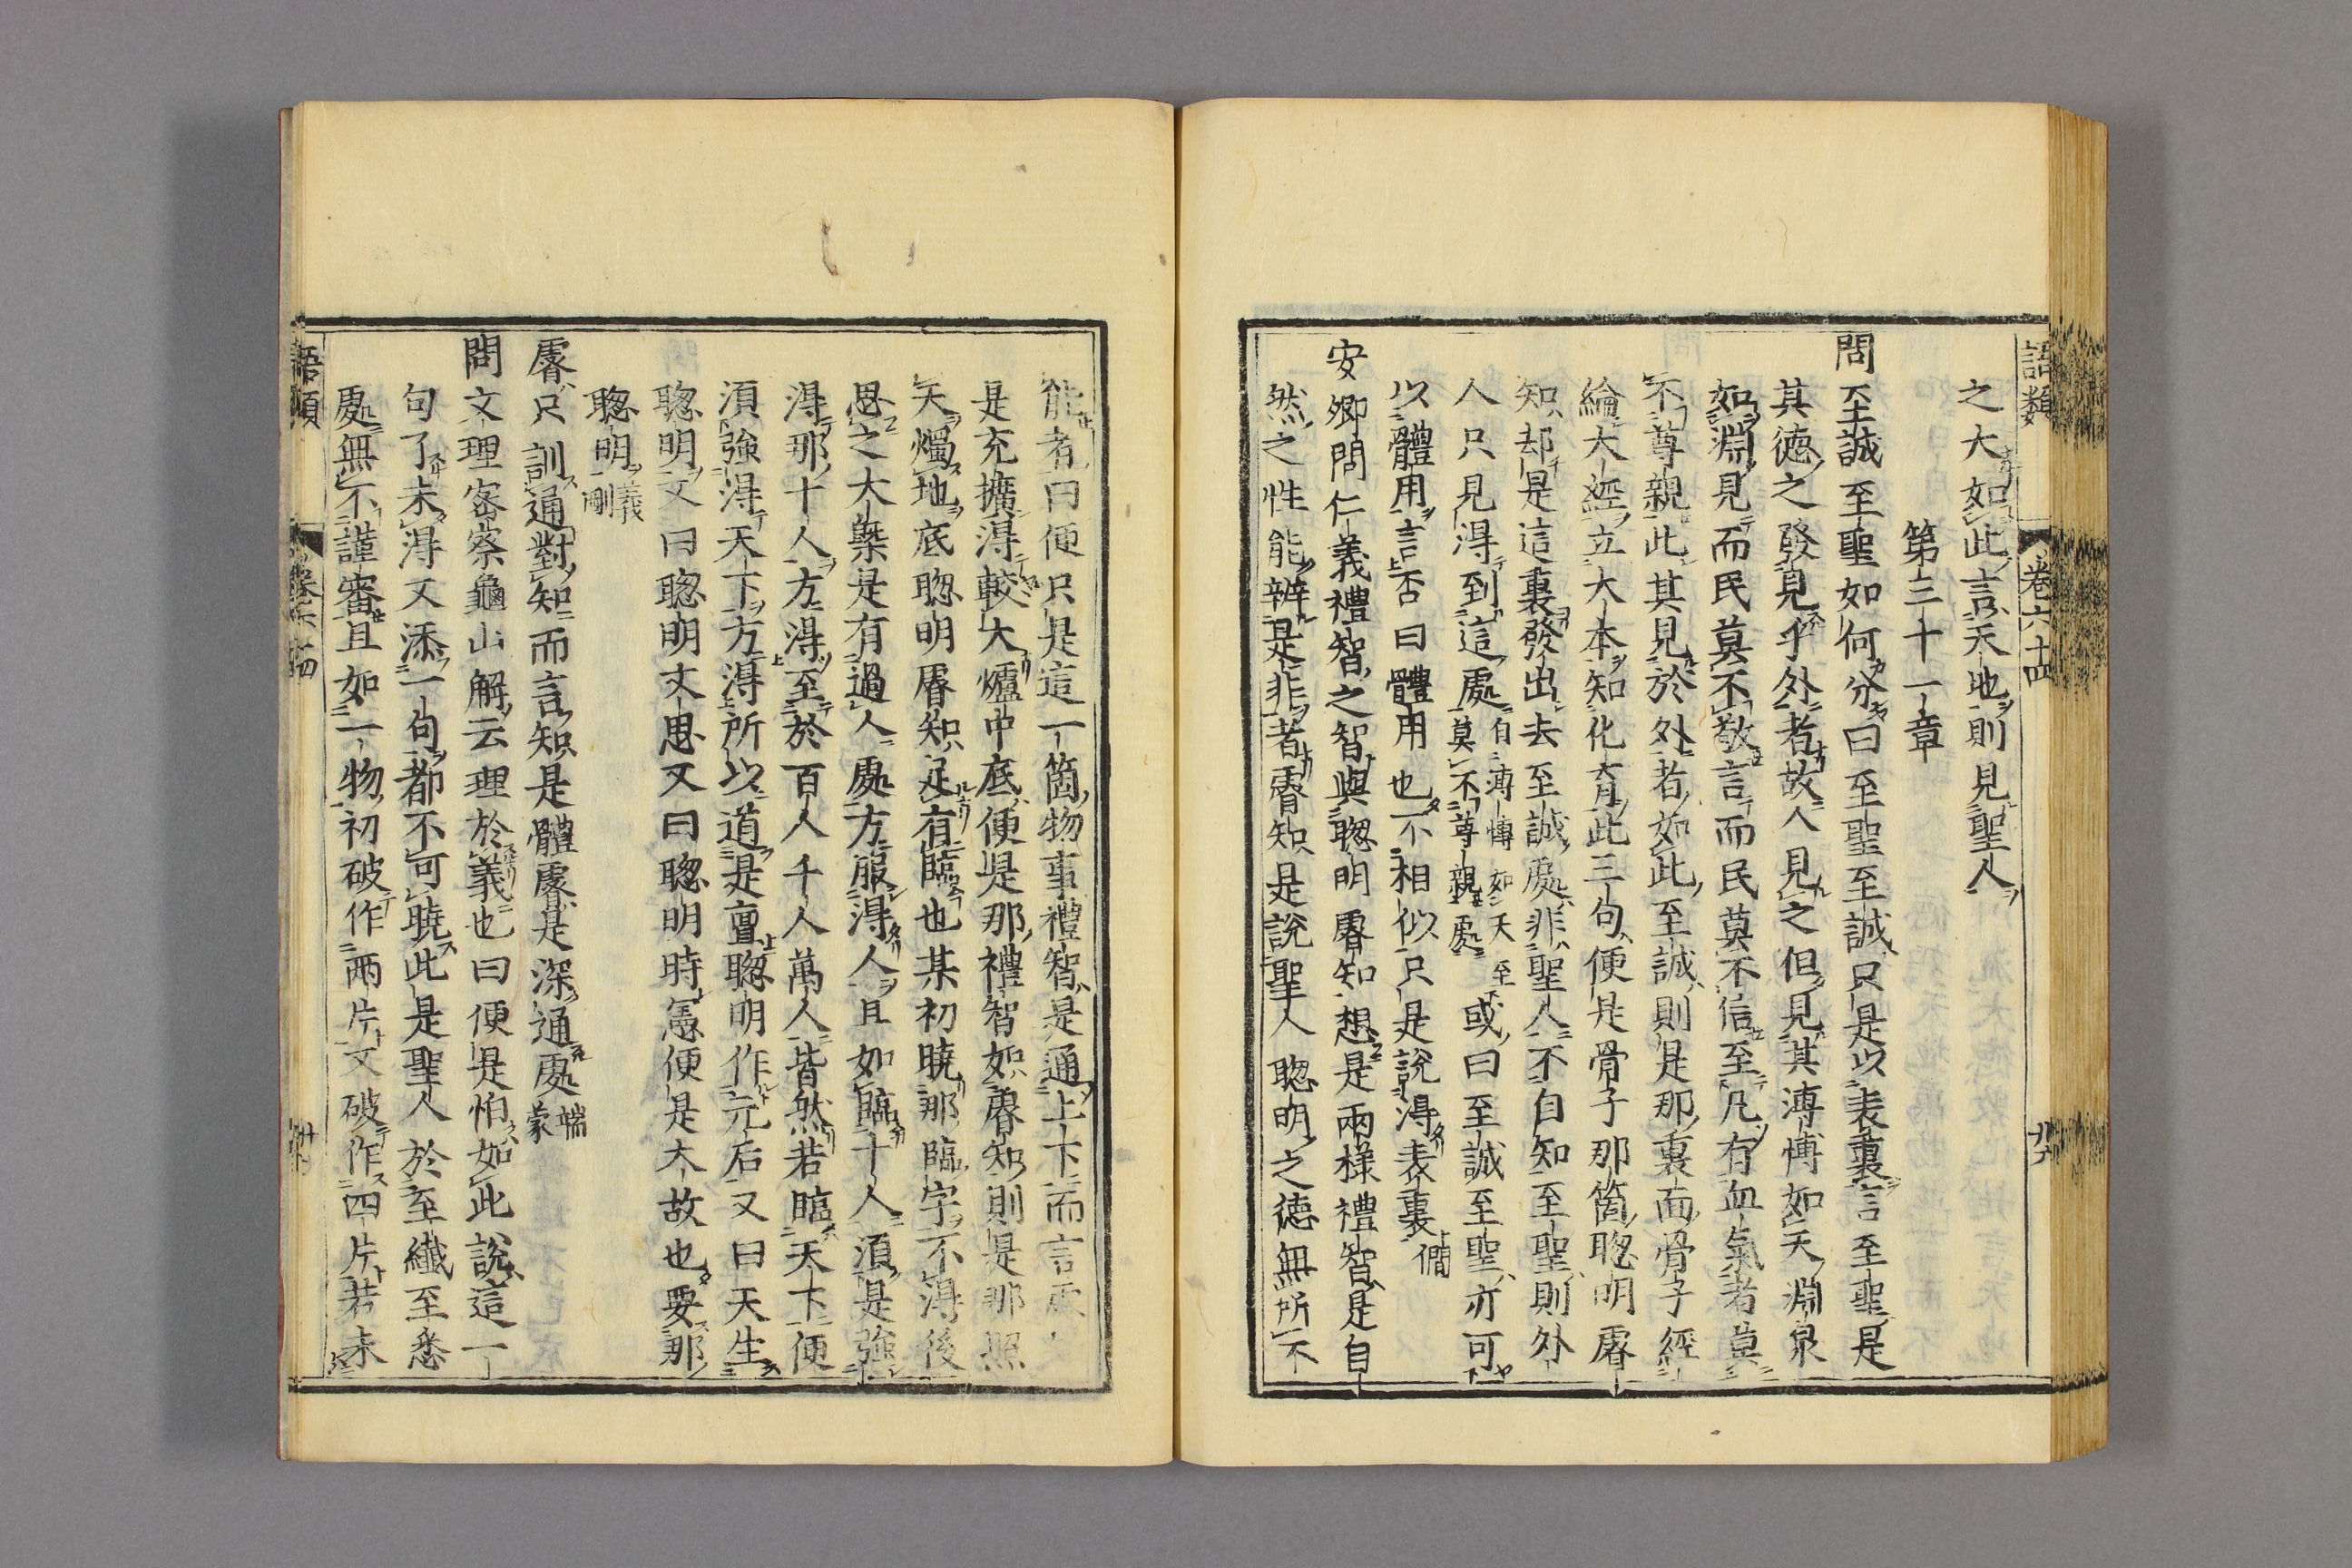 語類 卷六十四 廿六
之大如此言天地則見聖人
第三十一章
問至誠至聖如何分曰至聖至誠只是以表裏言至聖是
其德之發見乎外者故人見之但見其溥博如天淵泉
如淵見而民莫不敬言而民莫不信至凡有血氣者莫
不尊親此其見於外者如此至誠則是那裏面骨子經
綸大經立大本知化育此三句便是骨子那箇聦明睿
知却是這裏發出去至誠處非聖人不自知至聖則外
人只見得到這處自溥博如天至莫不尊親處或曰至誠至聖亦可
以體用言否曰體用也不相似只是說得表裏僩
安卿問仁義禮智之智與聦明睿知想是兩樣禮智是自
然之性能辨是非者睿知是說聖人聦明之德無所不
能者曰便只是這一箇物事禮智是通上下而言睿
是充擴得較大爐中底便是那禮智如睿知則是那照
天燭地底聦明睿知足有臨也某初曉那臨字不得後
思之大槩是有過人處方服得人且如臨十人須是強
得那十人方得至於百人千人萬人皆然若臨天下便
須強得天下方得所以道是亶聦明作元后又曰天生
聦明又曰聦明文思又曰聦明時憲便是大故也要那
聦明義剛
睿只訓通對知而言知是體睿是深通處端蒙
問文理密察龜山解云理於義也曰便是怕如此說這一
句了未得又添一句都不可曉此是聖人於至纖至悉
處無不謹審且如一物初破作兩片又破作四片若未
語類